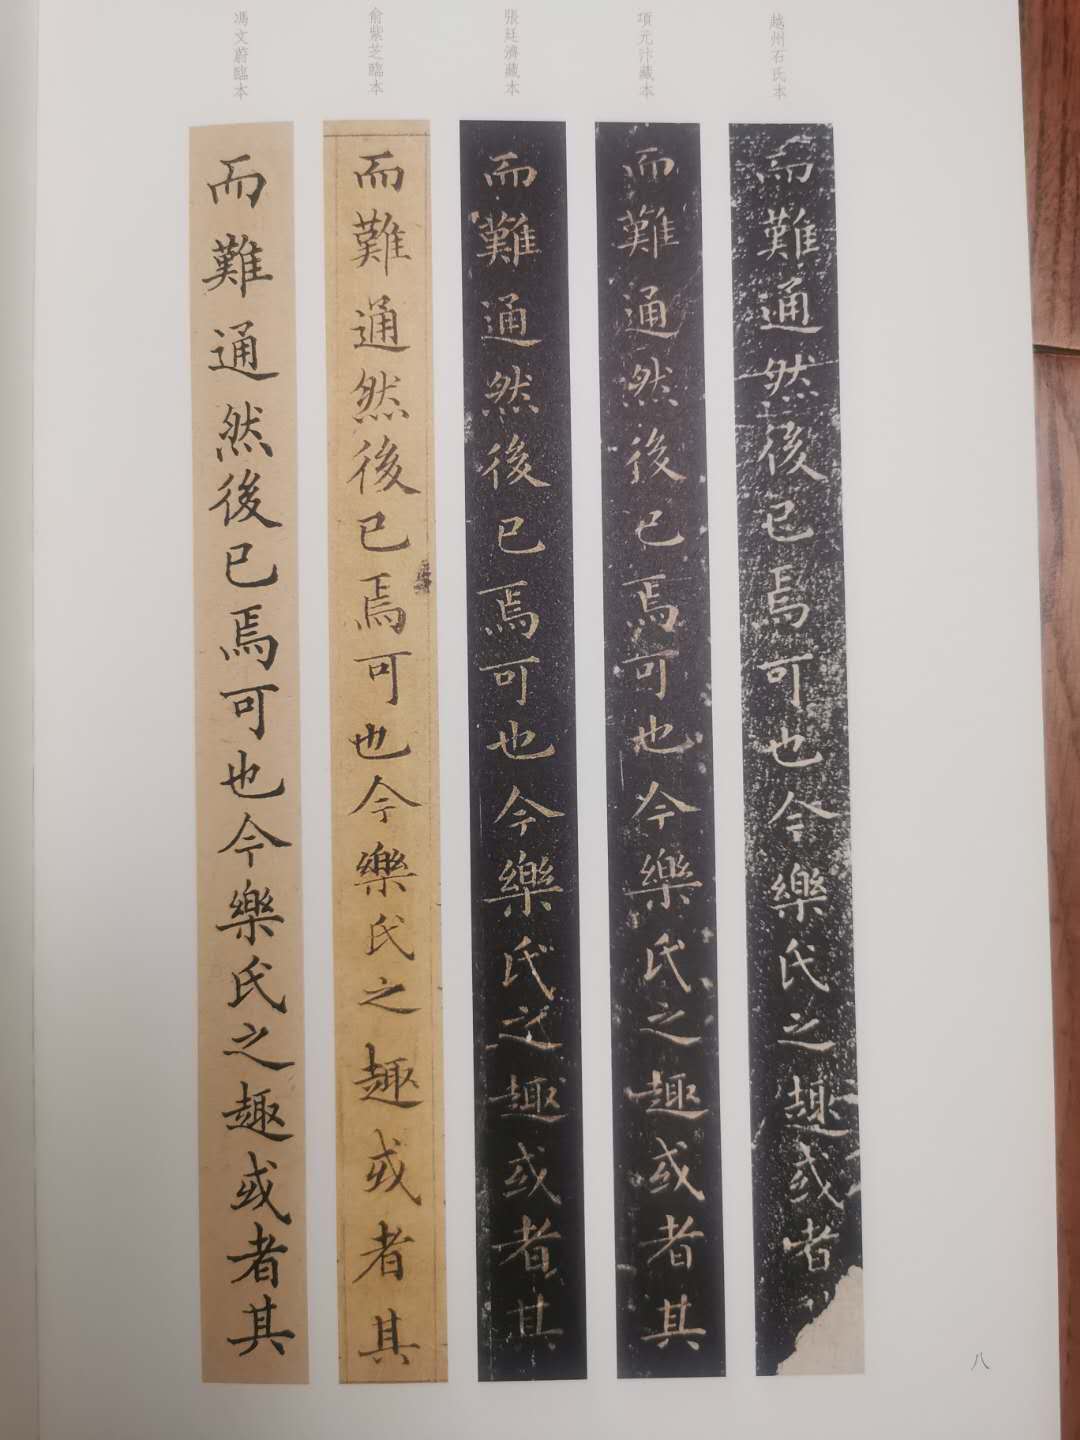 越州石氏本
而難通然後已焉可也今樂氏之趣或者
項元汴藏本
而難通然後已焉可也今樂氏之趣或者其
張廷濟藏本
而難通然後已焉可也今樂氏之趣或者其
俞紫芝臨本
而難通然後已焉可也今樂氏之趣或者其
馮文蔚臨本
而難通然後已焉可也今樂氏之趣或者其
八